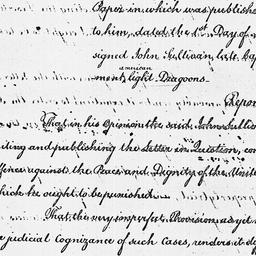 Paper in which was publishe
to him, dated the 1st Day of
signed John Sullivan, late Cap
american
ment, light Dragoons.
Repor
That in his Opinion the said John Sulliv
ding and publishing the Letter in Question, com
ffence against the Peace and Dignity of the Unite
which he ought to be punished.
That the very imperfect Provision as yet
e judicial Cognizance of such Cases, renders it do